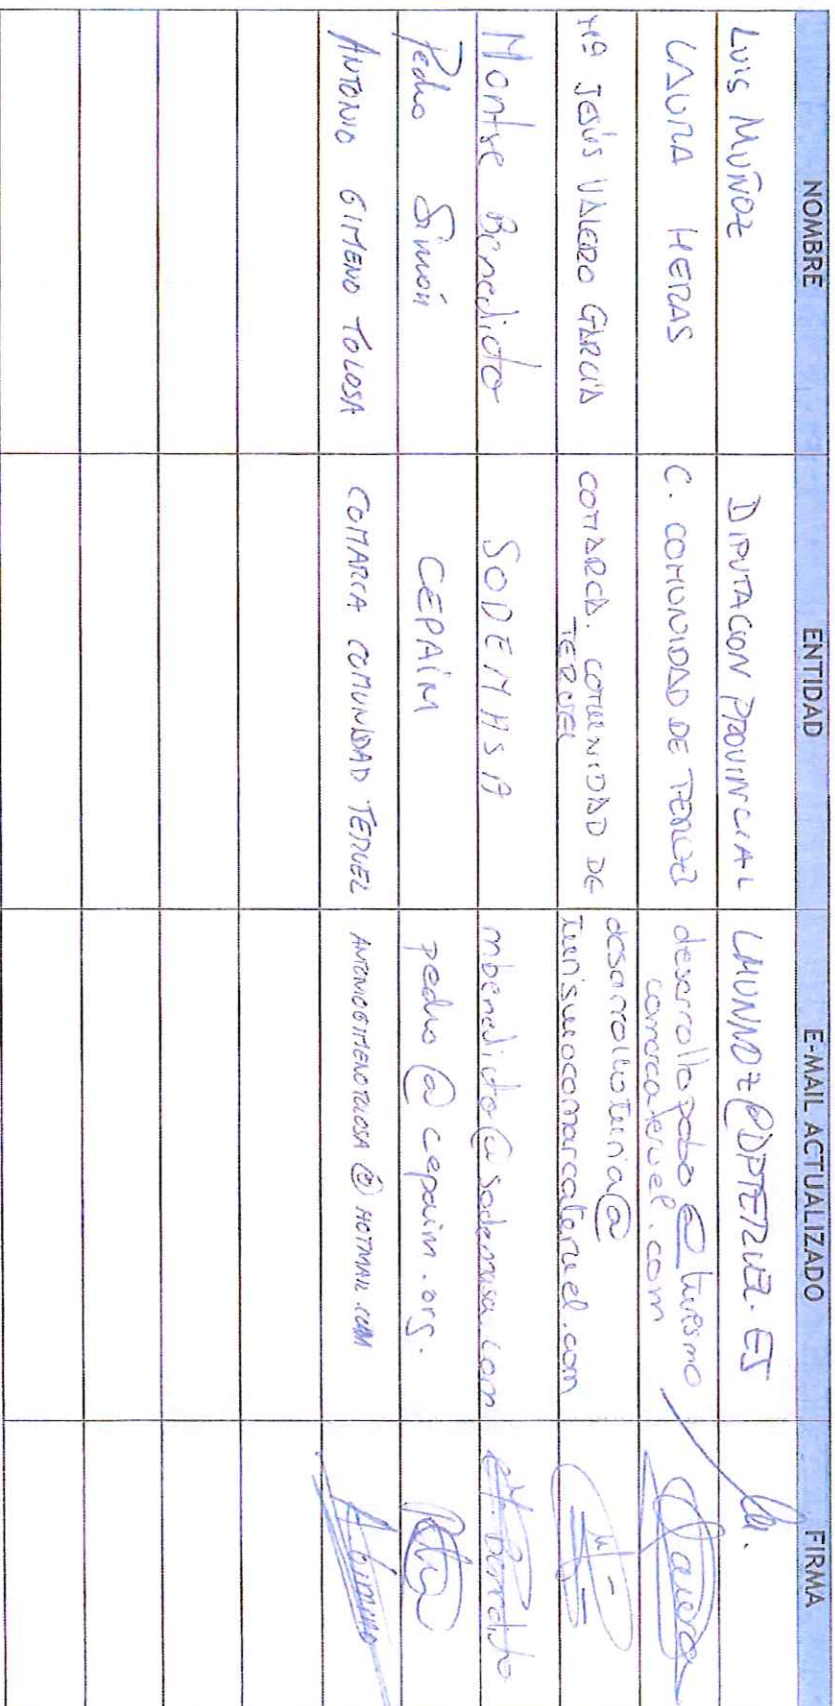 NOMBRE ENTIDAD E-MAIL ACTUALIZADO FIRMA
LUIS MUÑOZ DIPUTACION PROVINCIAL LMUNNOZ@DPTERUEL.ES
LAURA HERAS C. COMUNIDAD DE TERUEL desarrollopobo@turismo
comarcateruel.com
Mª JESÚS VALERO GARCÍA COMARCA. COMUNIDAD DE
TERUEL desarrolloturia@
turismocomarcateruel.com
Montse Benedicto SODEMASA mbenedicto@sodemasa.com
Pedro Simón CEPAIM pedro@cepaim.org.
ANTONIO GIMENO TOLOSA COMARCA COMUNIDAD TERUEL ANTONIOGIMENOTOLOSA@HOTMAIL.COM